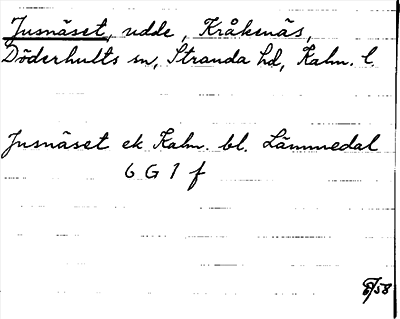 Jusnäset, udde, Kråkenäs,
Döderhults sn, Stranda hd, Kalm. l.
Jusnäset ek Kalm. bl. Lämmedal
6 G 1 f